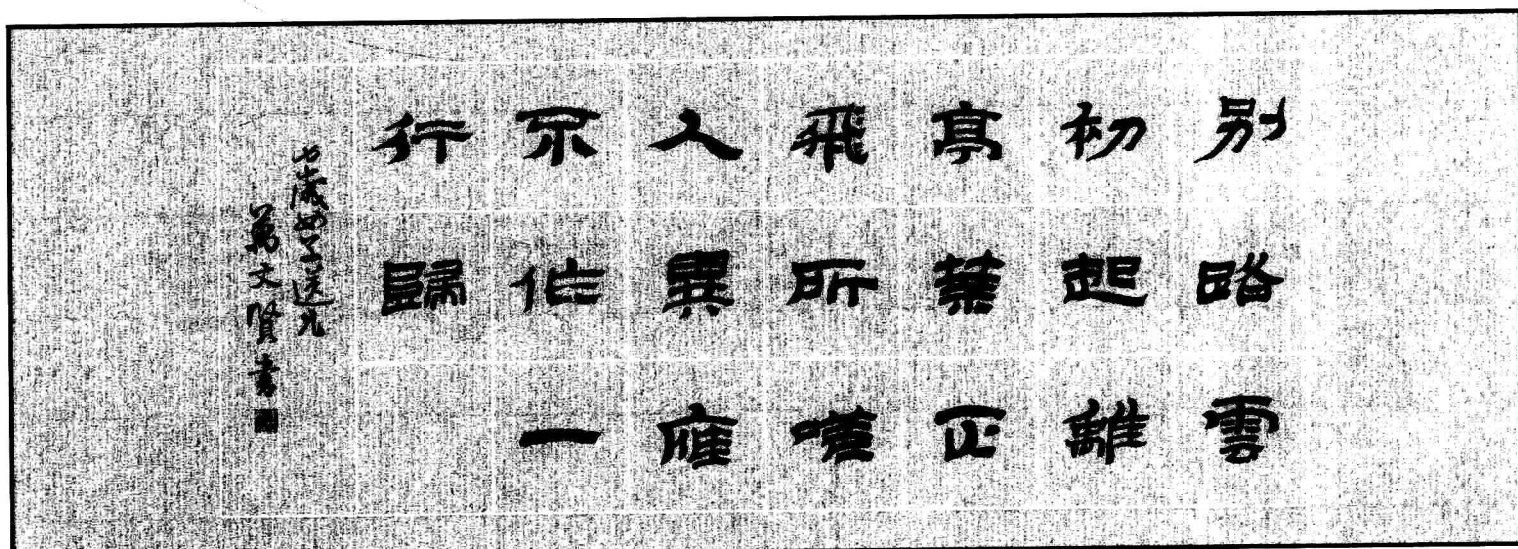 别路雲
初起離
亭葉正
飛所嗟
人異雁
不作一
行歸
七歲女子送兄
萬文賢書